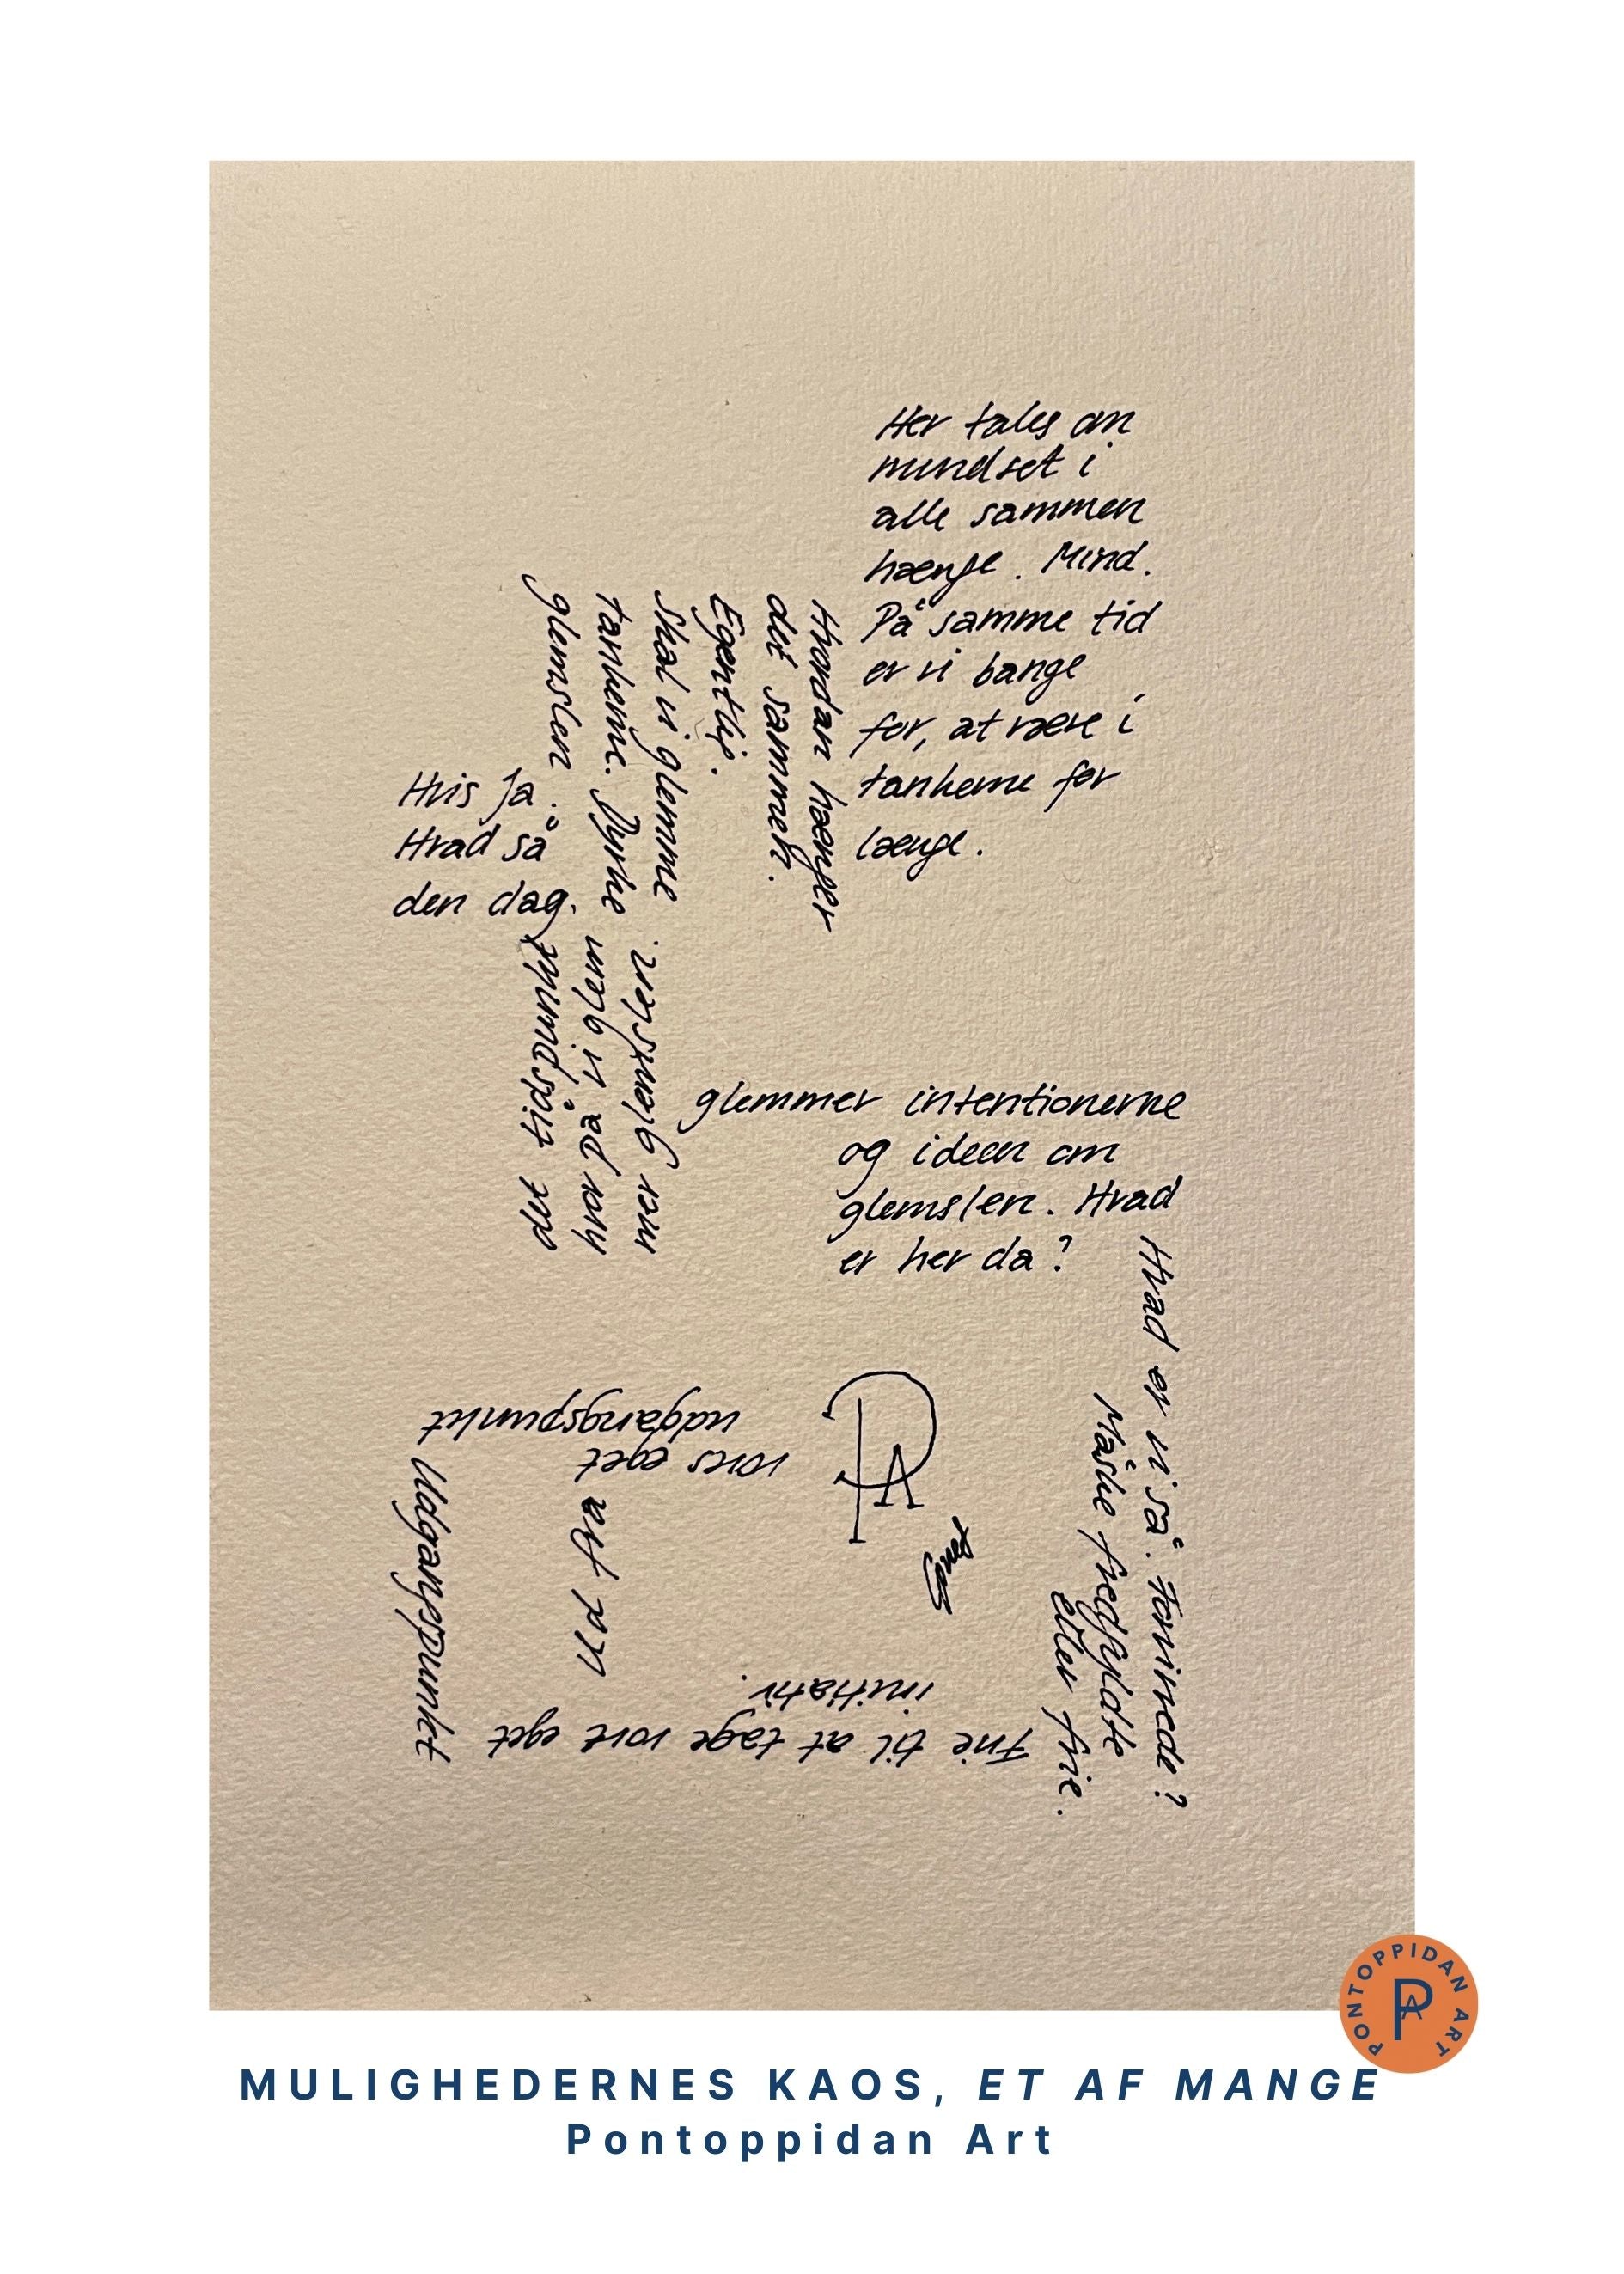 Her tales om
mindset i
alle sammen
hænge. Mind.
På samme tid
er vi bange
for, at være i
tankerne for
længe.
Hvordan hænger
det sammen.
Egentlig.
Skal vi glemme
tankerne. Dyrke
glemslen
Hvis Ja.
Hvad så
den dag.
det tidspunkt
hvor på vi glem
mer glemslen.
glemmer intentionerne
og ideen om
glemslen. Hvad
er her da?
Hvad er vi så. Forvirrede?
Måske fredfyldte
eller frie.
Frie til at tage vore eget
initiativ.
Udgangspunktet
ud fra
vores eget
udgangspunkt
PA
MULIGHEDERNES KAOS, ET AF MANGE
Pontoppidan Art
PONTOPPIDAN ART
PA